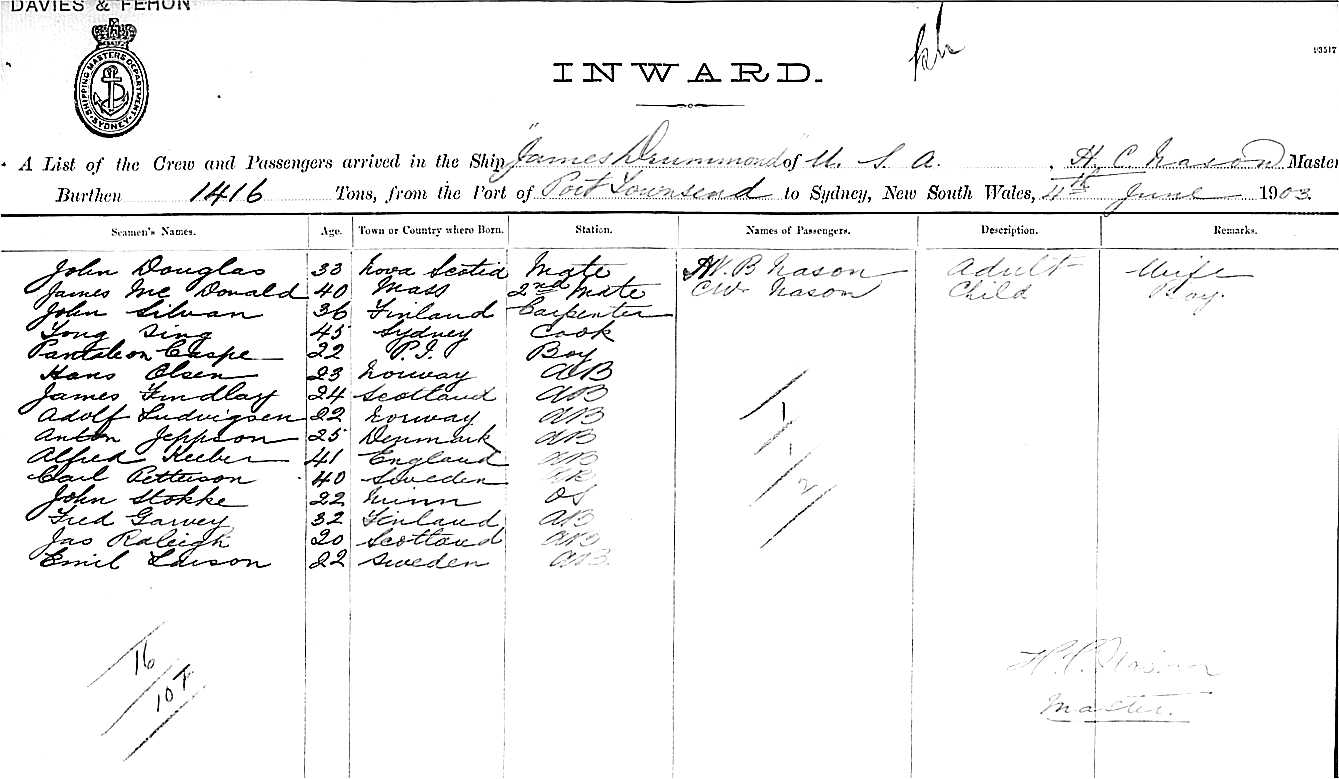 DAVIES & FEHON
SHIPPING MASTERS DEPARTMENT
SYDNEY
INWARD.
A List of the Crew and Passengers arrived in the Ship "James Drummond" of U. S. A. , H. C. Nason Master
Burthen 1416 Tons, from the Port of Port Townsend to Sydney, New South Wales, 4th June 1903.
Seamen's Names. Age. Town or Country where Born. Station. Names of Passengers. Description. Remarks.
John Douglas 33 Nova Scotia Mate W. B Nason Adult Wife
James Mc Donald 40 Mass 2nd Mate CW. Nason Child Boy.
John Silvan 36 Finland Carpenter
Tong Sing 45 Sydney Cook
Pantaleon Caspe 22 P.I. Boy
Hans Olsen 23 Norway AB
James Findlay 24 Scotland AB
Adolf Ludvigsen 22 Norway AB
Anton Jeppson 25 Denmark AB
Alfred Keeber 41 England AB
Carl Petterson 40 Sweden AB
John Stokke 22 Minn OS
Fred Garvey 32 Finland AB
Jas Raleigh 20 Scotland AB
Emil Larson 22 Sweden AB.
1
1
2
16
H. C. Nason
Master.